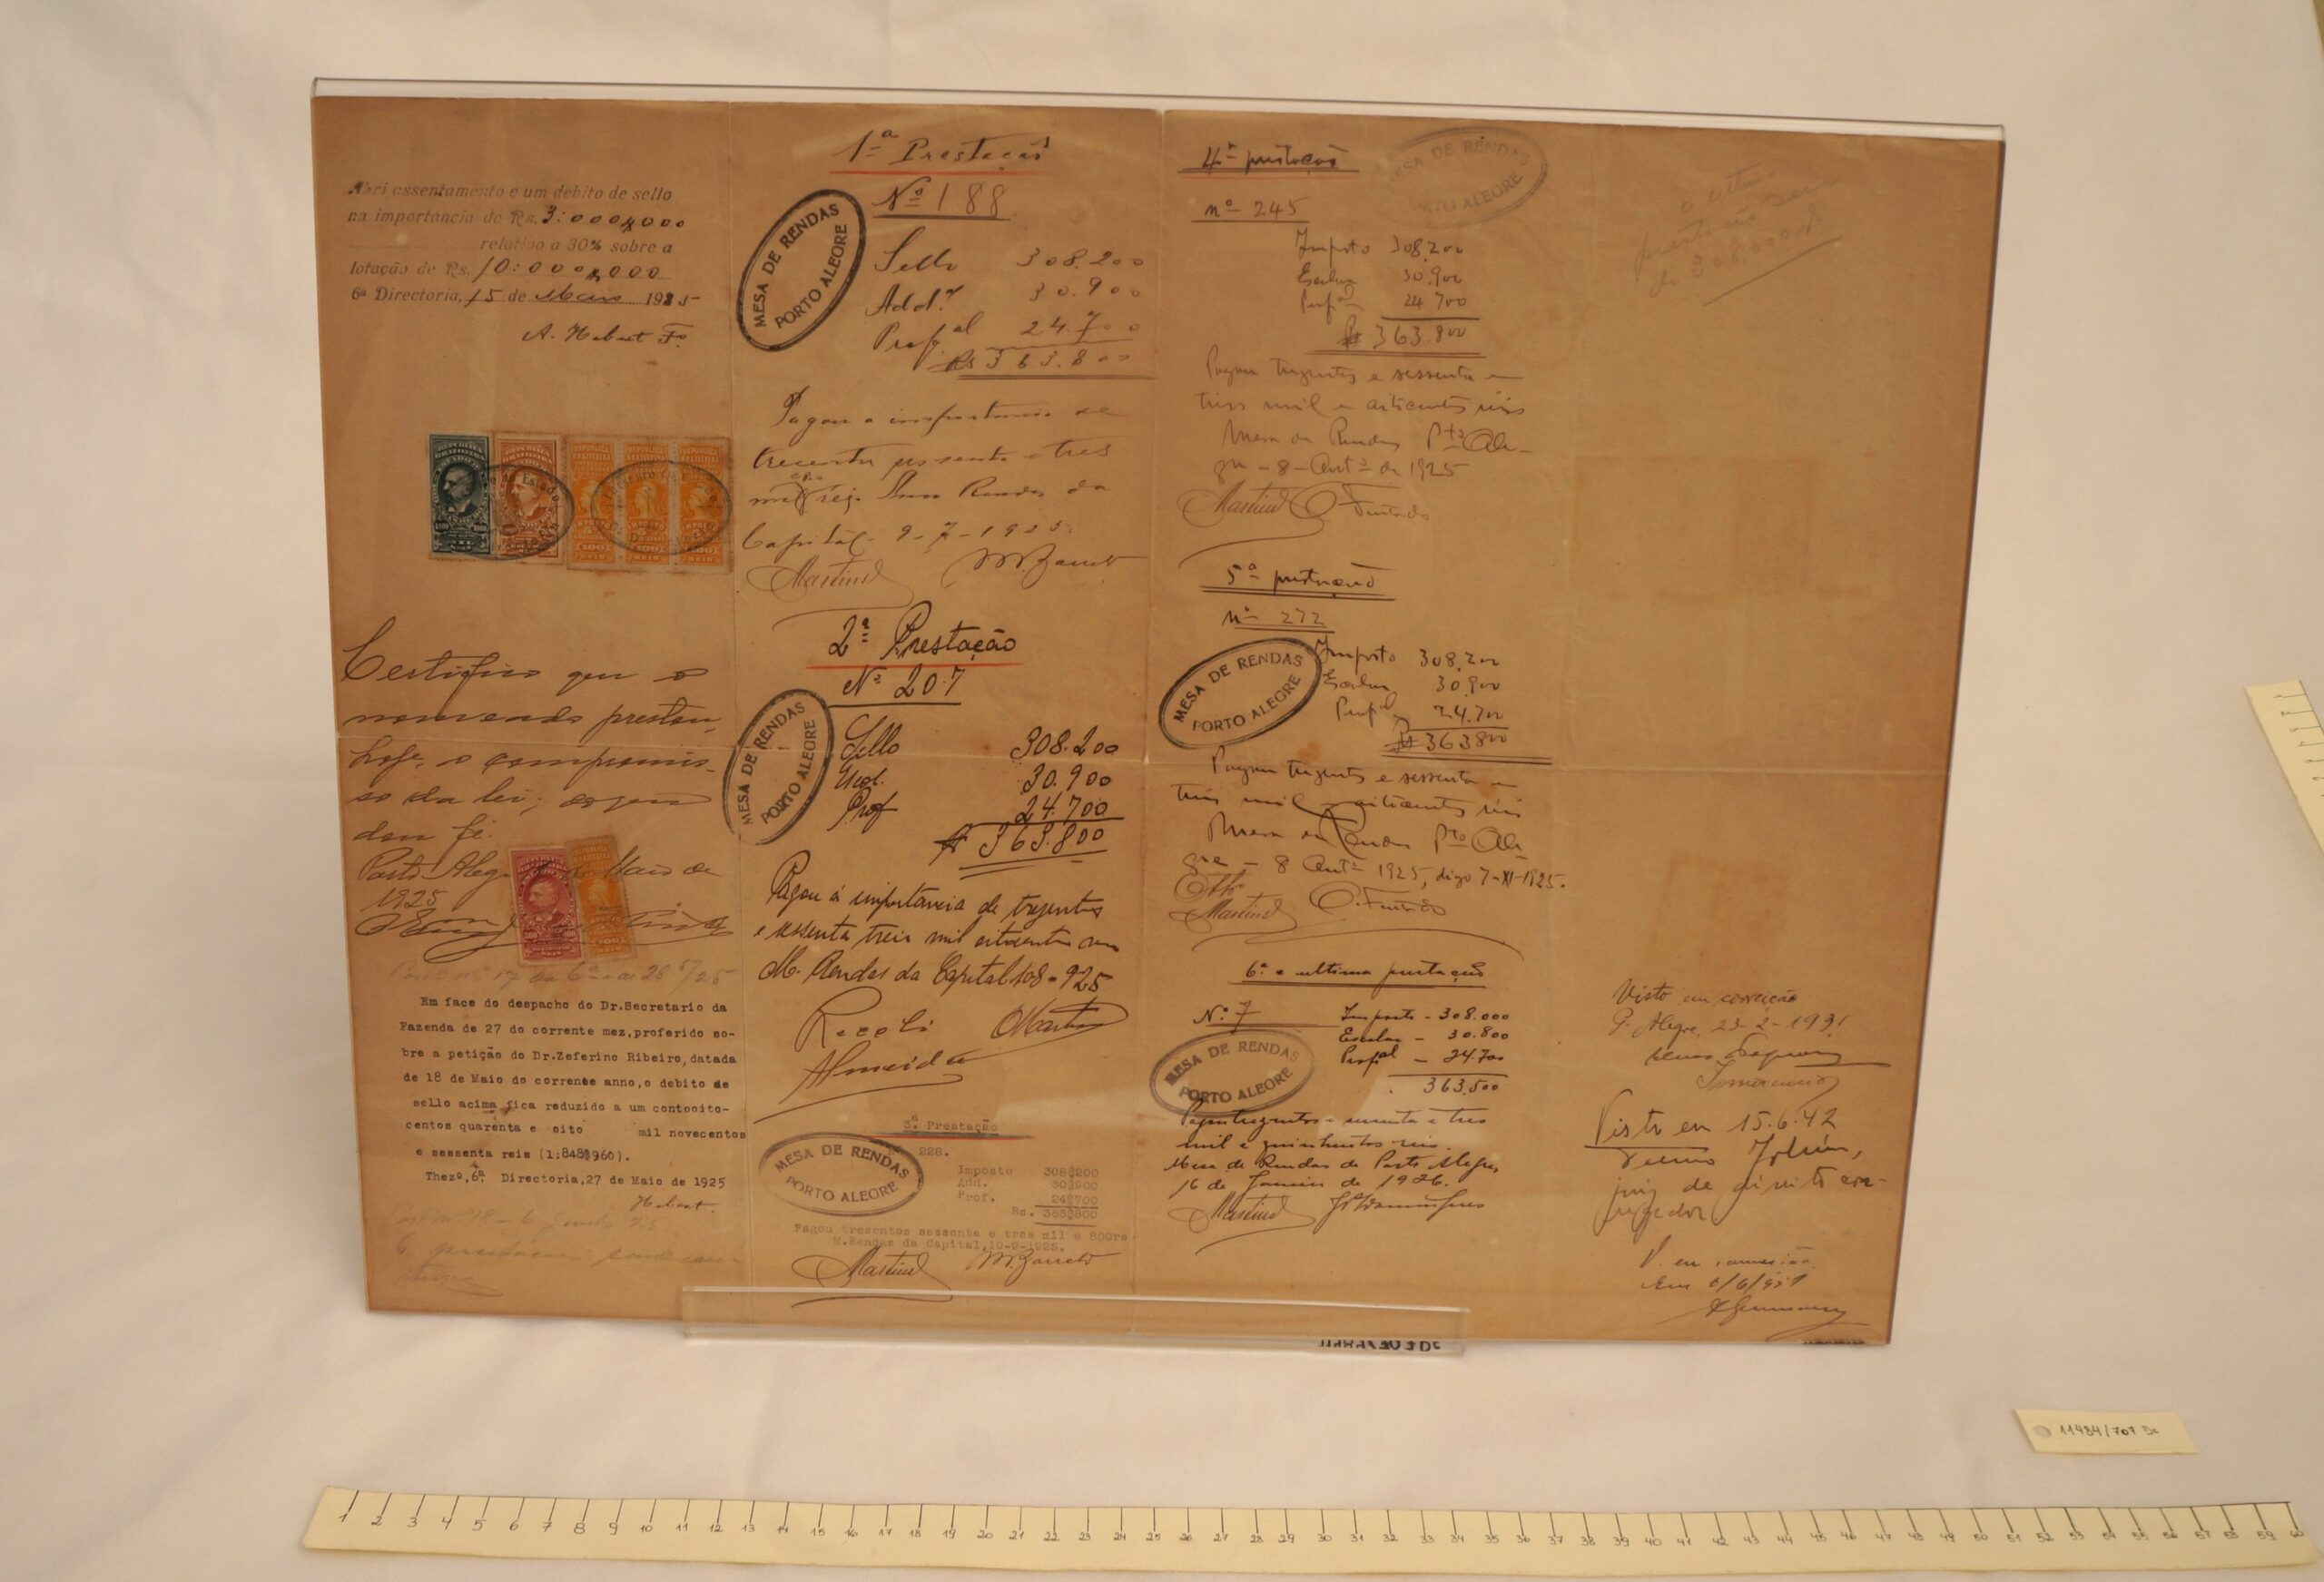 Abri assentamento e um debito de sello
na importancia de Rs. 3:000$000
relativo a 30% sobre a
lotação de Rs. 10:000$000
6ª Directoria, 15 de Maio 1925
A. Hebert Fº
Certifico que o
nomeado prestou,
hoje, o compromis-
so da lei; do que
dou fé.
Porto Alegre Maio de
1925
Em face do despacho do Dr.Secretario da
Fazenda de 27 do corrente mez,proferido so-
bre a petição do Dr.Zeferino Ribeiro,datada
de 18 de Maio do corrente anno,o debito de
sello acima fica reduzido a um contooito-
centos quarenta e oito mil novecentos
e sessenta reis (1:848$960).
Thezº,6ª Directoria,27 de Maio de 1925
Hebert.
1ª Prestação
Nº 188
MESA DE RENDAS
PORTO ALEGRE
Sello 308.200
Add.l 30.900
Prof.al 24.700
Rs 363.800
Pagou a importancia de
trecentos sessenta e tres
mil reis. Mesa Rendas da
Capital 9-7-1925.
Martins M. Barreto
2ª Prestação
Nº 207
MESA DE RENDAS
PORTO ALEGRE
Sello 308.200
Add. 30.900
Prof 24.700
363.800
Pagou a importancia de trezentos
e sessenta treis mil oitocentos reis
M. Rendas da Capital 108-925
Martins
Almeida
3ª Prestação
228.
MESA DE RENDAS
PORTO ALEGRE
Imposto 308$200
Add. 30$900
Prof. 24$700
Rs. 363$800
Pagou tresentos sessenta e tres mil e 800rs
M.Rendas da Capital,10-9-1925.
Martins M. Barreto
4ª prestação
MESA DE RENDAS
PORTO ALEGRE
nº 245
Imposto 308.200
Escolar 30.900
Prof.al 24.700
363.800
Pagou trezentos e sessenta e
tres mil e oitocentos réis
Mesa de Rendas Pto Ale-
gre - 8 - Outº de 1925
Martins O. Furtado
5ª prestação
nº 272
MESA DE RENDAS
PORTO ALEGRE
Imposto 308.200
Escolar 30.900
Prof.al 24.700
363800
Pagou trezentos e sessenta e
tres mil e oitocentos réis
Mesa de Rendas Pto Ale-
gre - 8 Outº 1925, digo 7-XI-1925.
Martins O. Furtado
6ª e ultima prestação
Nº 7
MESA DE RENDAS
PORTO ALEGRE
Imposto - 308.000
Escolar - 30.800
Prof.al - 24.700
363.500
Pagou trezentos e sessenta e tres
mil e quinhentos reis.
Mesa de Rendas de Porto Alegre,
16 de Janeiro de 1926.
Martins
a ultima
prestação
de 308.000
Visto em correição
P. Alegre, 23-2-1931
Visto em 15.6.42
juiz de direito cor-
regedor
V. em correição
11484/707 De
1 2 3 4 5 6 7 8 9 10 11 12 13 14 15 16 17 18 19 20 21 22 23 24 25 26 27 28 29 30 31 32 33 34 35 36 37 38 39 40 41 42 43 44 45 46 47 48 49 50 51 52 53 54 55 56 57 58 59 60